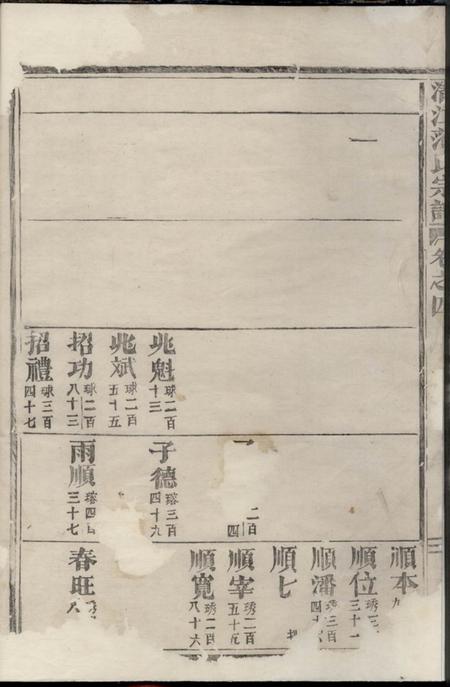 宗譜 卷之四
兆魁 球二百十三
兆斌 球二百五十五
招功 球二百八十三
招禮 球三百四十七
二百 四
子德 瑢三百四十九
雨順 瑢四 三十七
順本
順位 琇三 三十一
順潘 琇三百四十
順七
順宰 琇二百五十九
順寬 琇二百八十六
春旺